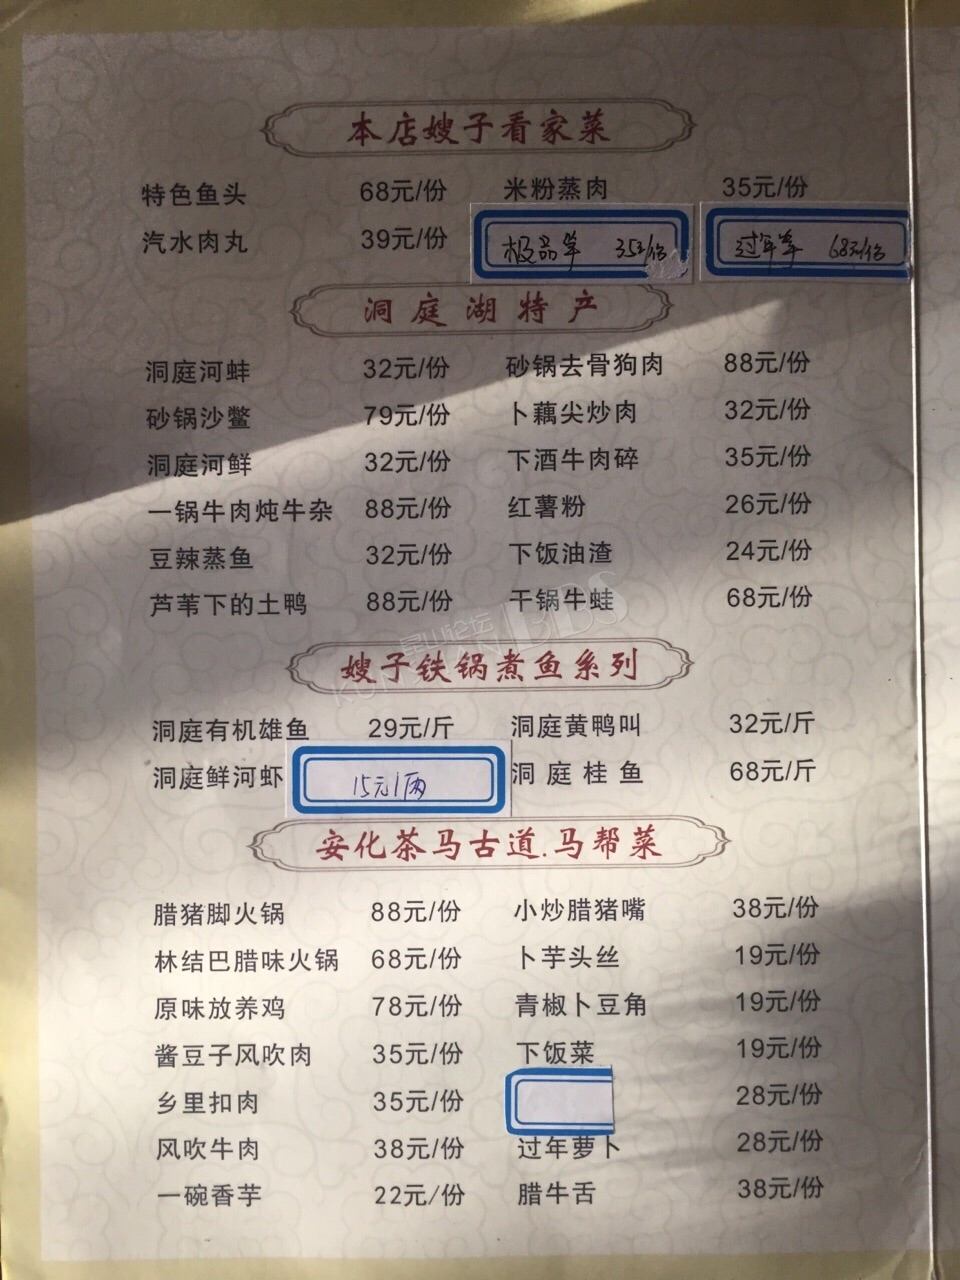 本店嫂子看家菜
特色鱼头 68元/份 米粉蒸肉 35元/份
汽水肉丸 39元/份 极品羊 35元/份 过年羊 68元/份
洞庭湖特产
洞庭河蚌 32元/份 砂锅去骨狗肉 88元/份
砂锅沙鳖 79元/份 卜藕尖炒肉 32元/份
洞庭河鲜 32元/份 下酒牛肉碎 35元/份
一锅牛肉炖牛杂 88元/份 红薯粉 26元/份
豆辣蒸鱼 32元/份 下饭油渣 24元/份
芦苇下的土鸭 88元/份 干锅牛蛙 68元/份
昆山论坛
KUNSHAN BBS
嫂子铁锅煮鱼系列
洞庭有机雄鱼 29元/斤 洞庭黄鸭叫 32元/斤
洞庭鲜河虾 15元1两 洞庭桂鱼 68元/斤
安化茶马古道.马帮菜
腊猪脚火锅 88元/份 小炒腊猪嘴 38元/份
林结巴腊味火锅 68元/份 卜芋头丝 19元/份
原味放养鸡 78元/份 青椒卜豆角 19元/份
酱豆子风吹肉 35元/份 下饭菜 19元/份
乡里扣肉 35元/份 28元/份
风吹牛肉 38元/份 过年萝卜 28元/份
一碗香芋 22元/份 腊牛舌 38元/份